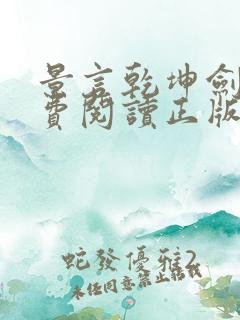 景言乾坤劍
費閱讀正版
蛇發優雅2
未任同意禁止轉載